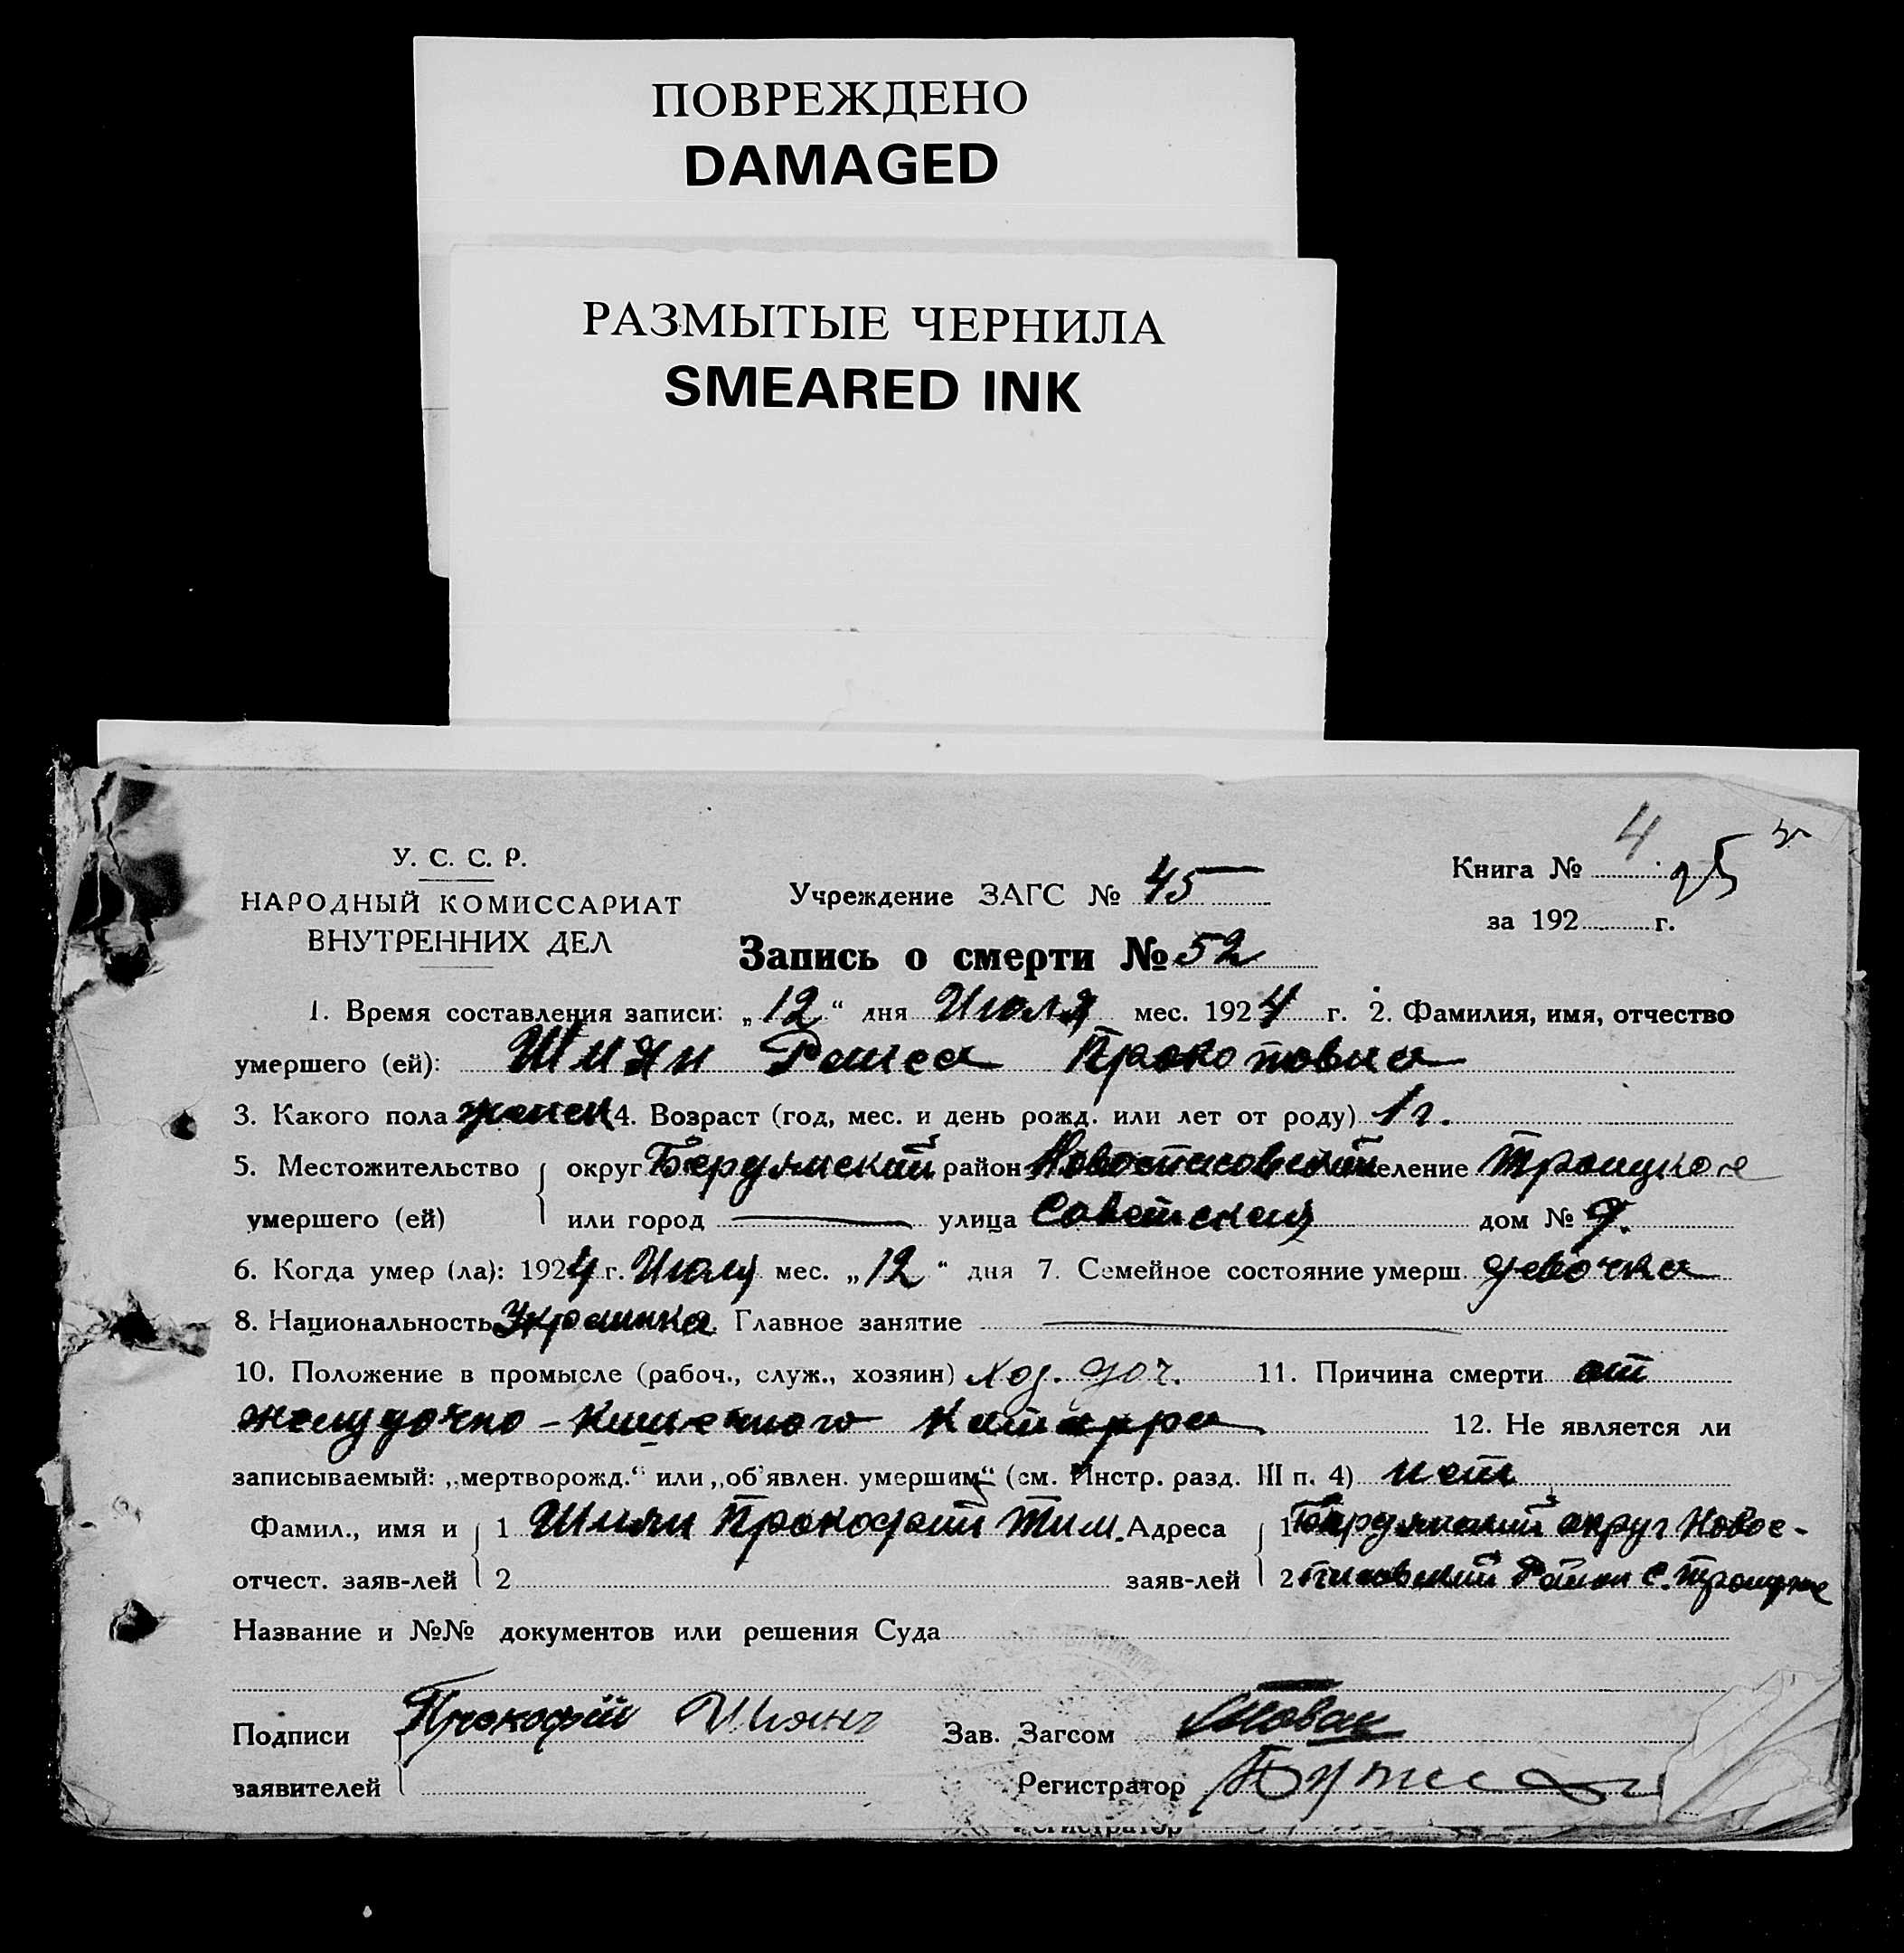 ПОВРЕЖДЕНО
DAMAGED
РАЗМЫТЫЕ ЧЕРНИЛА
SMEARED INK
У. С. С. Р.
НАРОДНЫЙ КОМИССАРИАТ
ВНУТРЕННИХ ДЕЛ
Учреждение ЗАГС № 45
Книга № 4 25
за 192 г.
Запись о смерти № 52
1. Время составления записи: „12“ дня Июля мес. 1924 г. 2. Фамилия, имя, отчество
умершего (ей): Шиян Раиса Прокоповна
3. Какого пола женск 4. Возраст (год, мес. и день рожд. или лет от роду) 1 г.
5. Местожительство округ Бердянский район Новоспасовский селение Троицкое
умершего (ей) или город — улица Советская дом №
6. Когда умер (ла): 1924 г. Июля мес. „12“ дня 7. Семейное состояние умерш. девочка
8. Национальность Украинка 9. Главное занятие —
10. Положение в промысле (рабоч., служ., хозяин) доч. 11. Причина смерти от
желудочно-кишечного катарра 12. Не является ли
записываемый: „мертворожд.“ или „об'явлен. умершим“ (см. Инстр. разд. III п. 4) нет
Фамил., имя и 1 Шиян Прокофий Тим. Адреса 1 Бердянский округ Новос-
отчест. заяв-лей 2 заяв-лей 2 пасовский Район с. Троицкое
Название и №№ документов или решения Суда
Подписи Прокофий Шиян Зав. Загсом
заявителей Регистратор